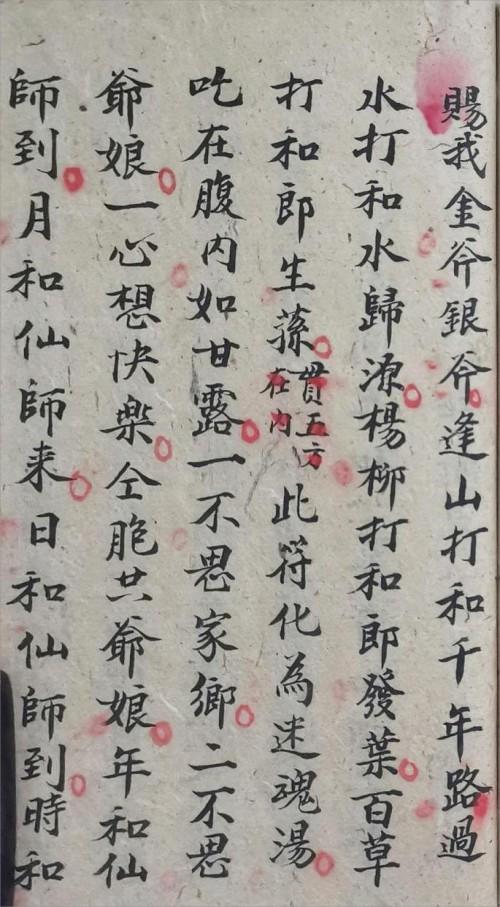 賜我金斧銀斧逢山打和千年路過
水打和水歸源楊柳打和郎發葉百草
打和郎生蓀貫五方在内此符化為迷魂湯
吃在腹内如甘露一不思家鄉二不思
爺娘一心想快樂仝胞共爺娘年和仙
師到月和仙師来日和仙師到時和